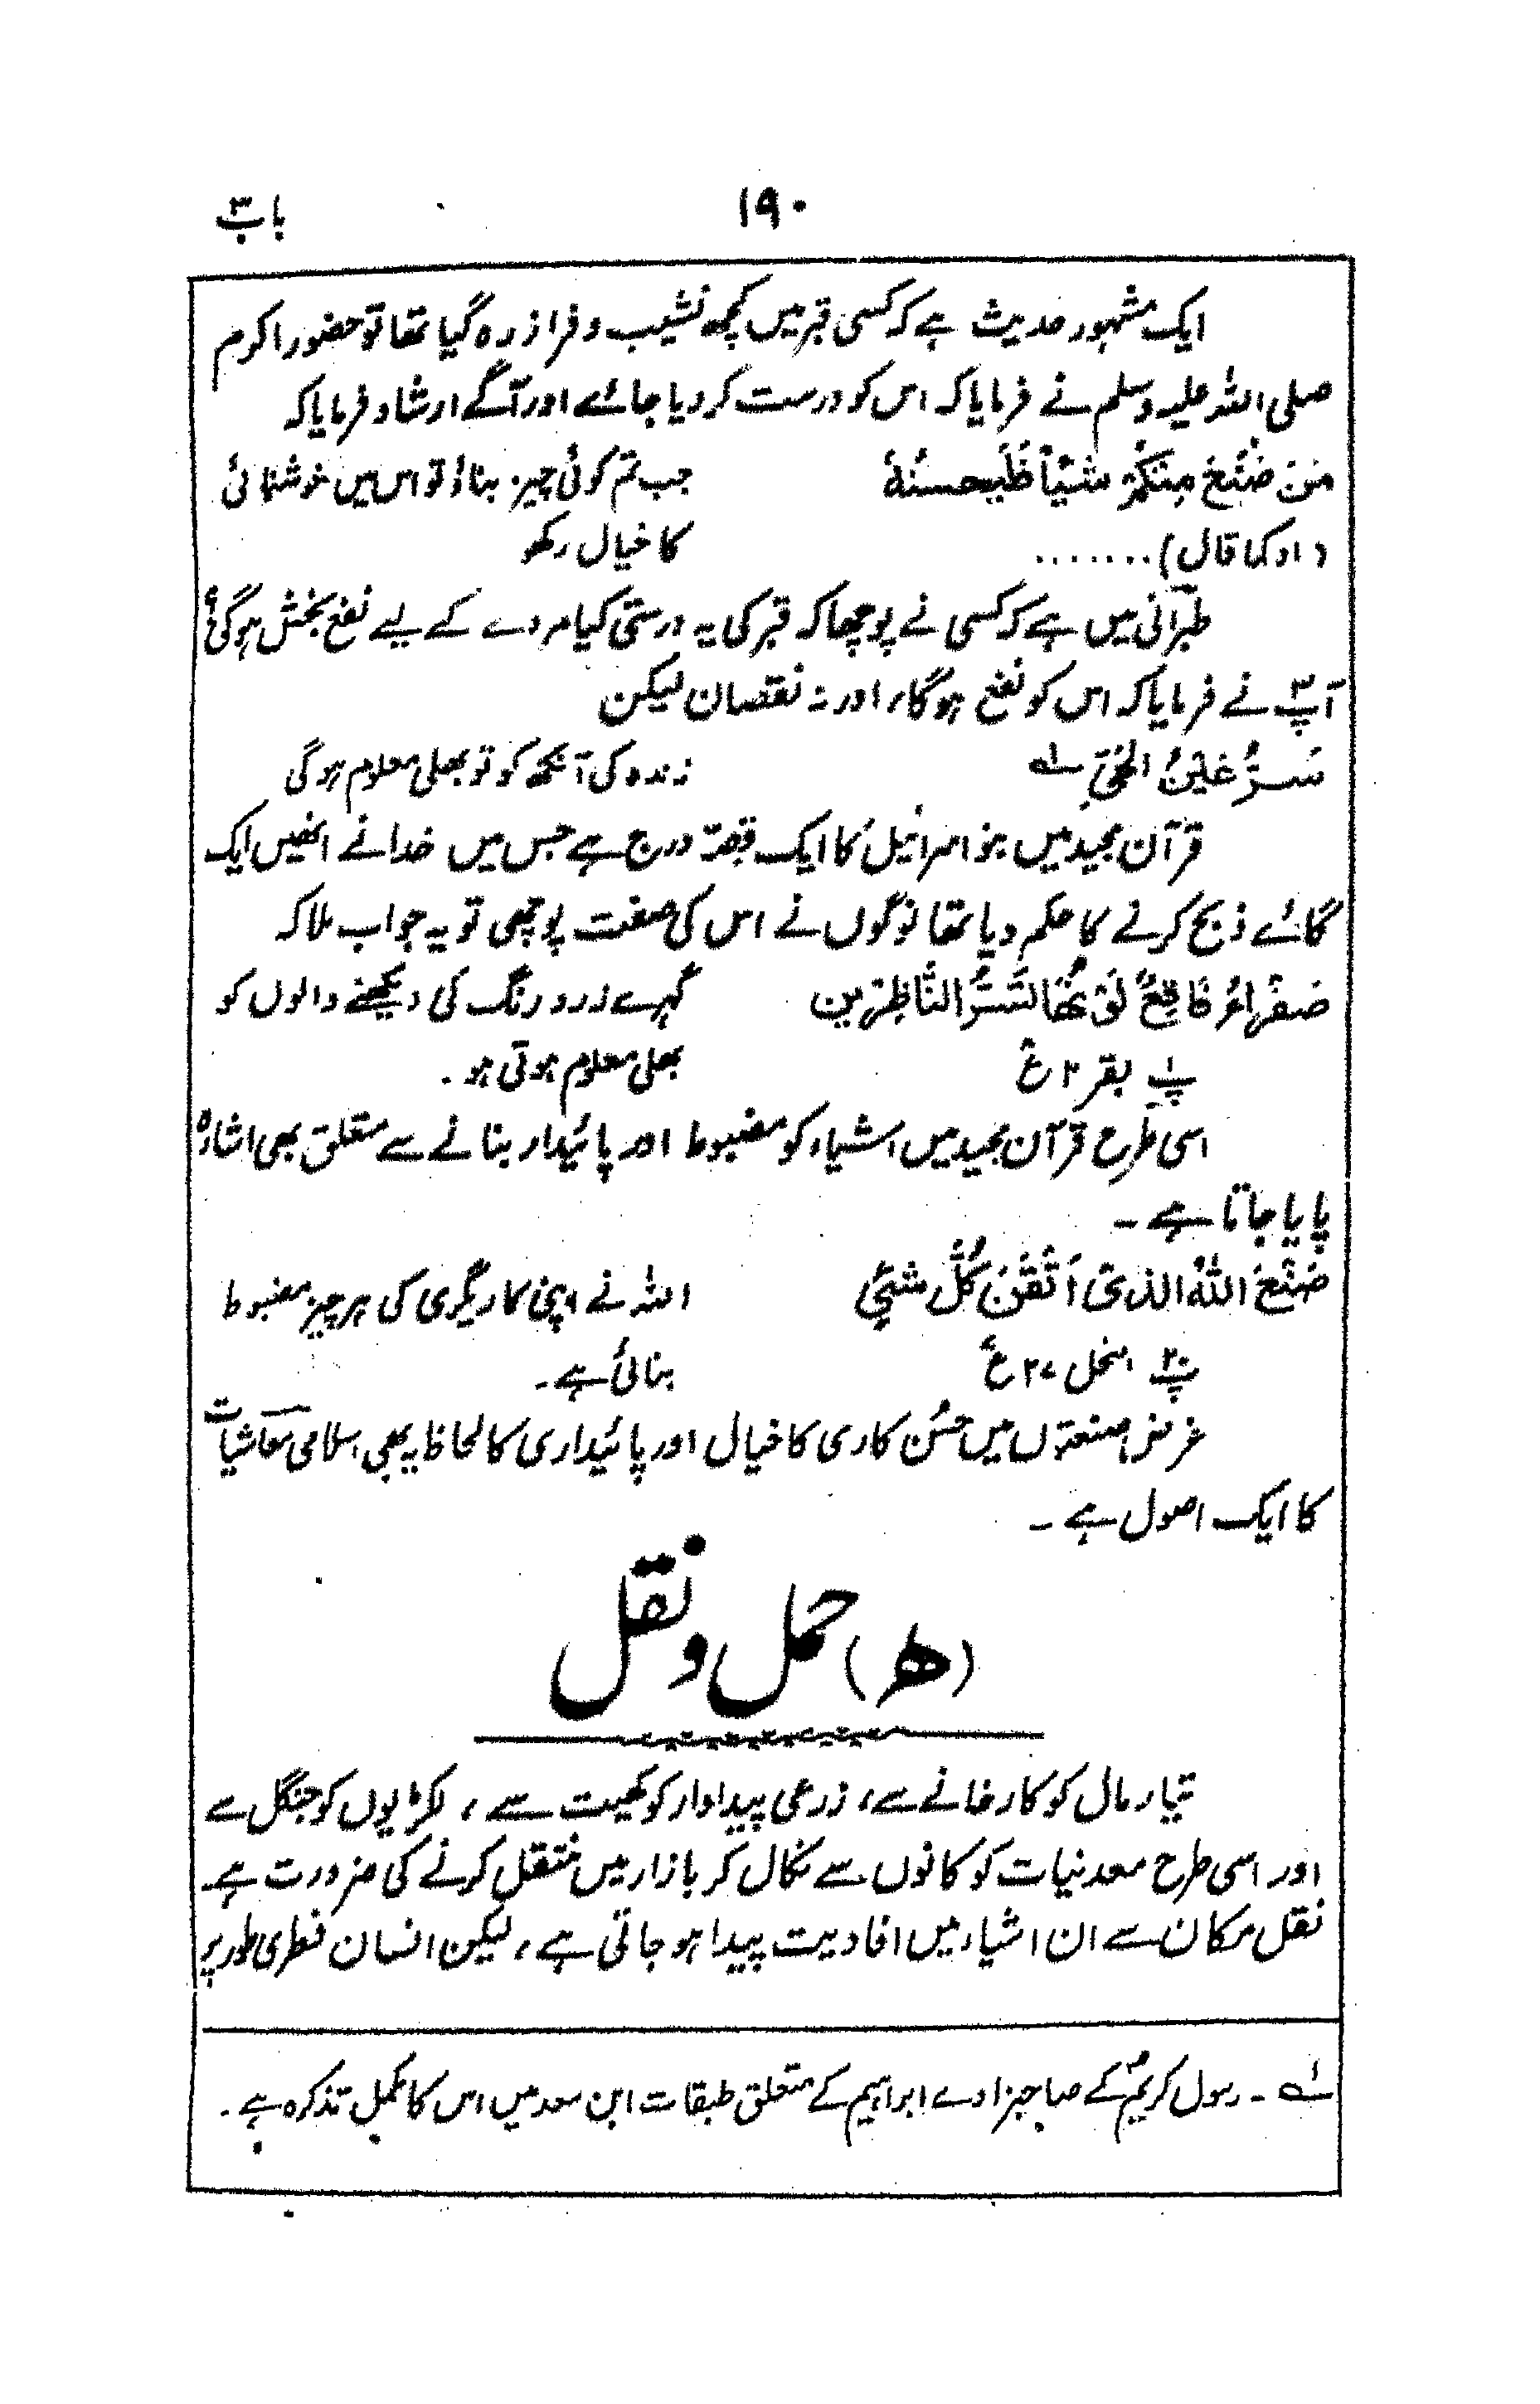 باب ۳
۱۹۰
ایک مشہور حدیث ہے کہ کسی قبر میں کچھ نشیب و فراز رہ گیا تھا تو حضور اکرم
صلی اللہ علیہ وسلم نے فرمایا کہ اس کو درست کر دیا جائے اور آگے ارشاد فرمایا کہ
مَنْ صَنَعَ مِنْکُمْ شَیْئاً فَلْیحسنہُ
جب تم کوئی چیز بناؤ تو اس میں خوشنمائی
(اوکما قال) .......
کا خیال رکھو
طبرانی میں ہے کہ کسی نے پوچھا کہ قبر کی یہ درستی کیا مردے کے لیے نفع بخش ہوگی؟
آپؐ نے فرمایا کہ اس کو نفع ہوگا، اور نہ نقصان لیکن
سَرَّ عَیْنُ الحَیِّ ۱ے
زندہ کی آنکھ کو تو بھلی معلوم ہوگی
قرآن مجید میں بنو اسرائیل کا ایک قصّہ درج ہے جس میں خدا نے انھیں ایک
گائے ذبح کرنے کا حکم دیا تھا لوگوں نے اس کی صفت پوچھی تو یہ جواب ملا کہ
صَفْرَاءُ فَاقِعٌ لَوْنُھَا تَسُرُّ النَّاظِرِین
گہرے زرد رنگ کی دیکھنے والوں کو
پ۱ بقر ۲ ع
بھلی معلوم ہوتی ہو۔
اسی طرح قرآن مجید میں اشیاء کو مضبوط اور پائیدار بنانے سے متعلق بھی اشارہ
پایا جاتا ہے ۔
صُنْعَ اللّٰہِ الذی اَتْقَنَ کُلَّ شَیْیٍٔ
اللہ نے اپنی کاریگری کی ہر چیز مضبوط
پ۲۰ النحل ۲۷ ع
بنائی ہے۔
غرض صنعتوں میں حُسن کاری کا خیال اور پائیداری کا لحاظ یہ بھی اسلامی معاشیات
کا ایک اصول ہے ۔
(ھ) حمل و نقل
تیار مال کو کارخانے سے، زرعی پیداوار کو کھیت سے، لکڑیوں کو جنگل سے
اور اسی طرح معدنیات کو کانوں سے نکال کر بازار میں منتقل کرنے کی ضرورت ہے۔
نقل مکان سے ان اشیاء میں افادیت پیدا ہو جاتی ہے، لیکن انسان فطری طور پر
۱ے ۔ رسول کریمؐ کے صاحبزادے ابراہیم کے متعلق طبقات ابن سعد میں اس کا مکمل تذکرہ ہے۔